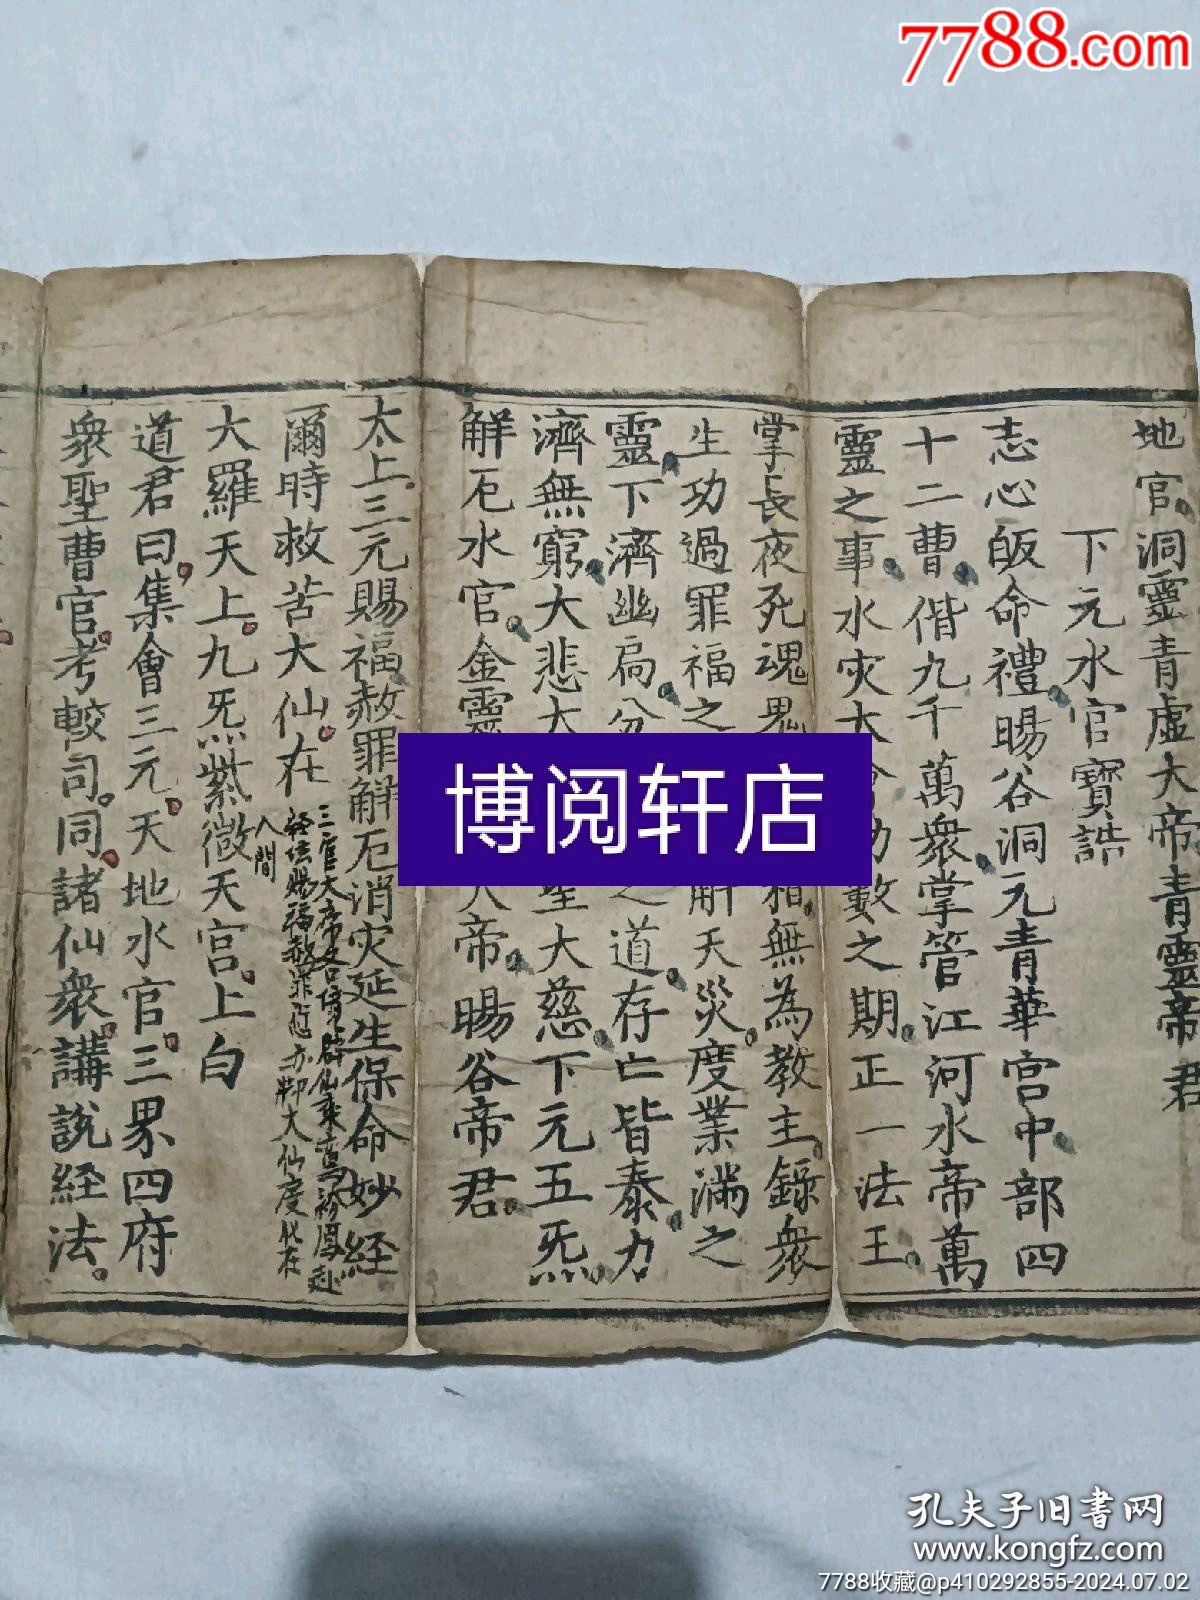 7788.com
地官洞靈青虛大帝青靈帝君
下元水官寶誥
志心皈命禮暘谷洞元青華宮中部四
十二曹偕九千萬衆掌管江河水帝萬
靈之事水灾大
數之期正一法王
掌長夜死魂鬼
無為教主錄衆
生功過罪福之
解天災度業滿之
靈下濟幽扃分
之道存亡皆泰力
濟無窮大悲大
聖大慈下元五炁
解厄水官金靈
大帝暘谷帝君
太上三元賜福赦罪解厄消灾延生保命妙經
爾時救苦大仙在
三官大帝各
大仙度化在
人間
大羅天上九炁紫微天宫上白
道君曰集會三元天地水官三界四府
衆聖曹官考較司同諸仙衆講說經法
博阅轩店
孔夫子旧书网
www.kongfz.com
7788收藏@p410292855-2024.07.02